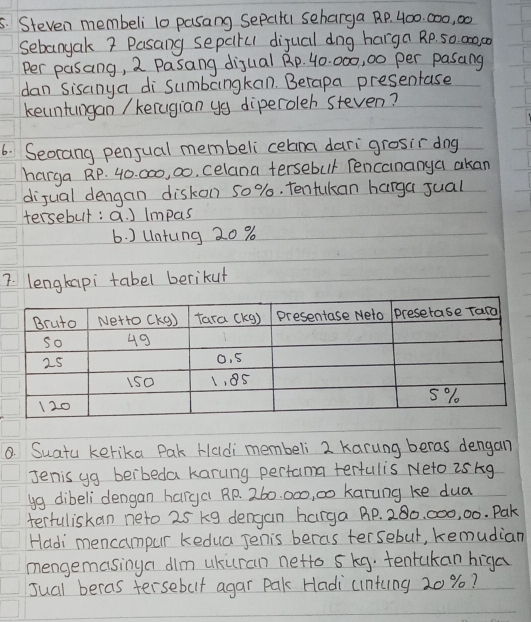 5. Steven membeli 10 pasang sepatu seharga RP. 400.000,00
Sebanyak 7 Pasang sepatu dijual dng harga RP. 50.000,00
Per pasang, 2 Pasang dijual Rp. 40.000,00 per pasang
dan sisanya di sumbangkan. Berapa presentase
keuntungan / kerugian yg diperoleh Steven?
6. Seorang penjual membeli celana dari grosir dng
harga RP. 40.000,00. celana tersebut rencananya akan
dijual dengan diskon 50%. Tentukan harga jual
tersebut : a.) Impas
b.) Untung 20 %
7. lengkapi tabel berikut
Bruto Netto (kg) Tara (kg) Presentase Neto Presetase Tara
50 49
25 0,5
150 1,85
120 5%
8. Suatu ketika Pak Hadi membeli 2 karung beras dengan
Jenis yg berbeda karung pertama tertulis Neto 25 kg
yg dibeli dengan harga RP. 260.000,00 karung ke dua
tertuliskan neto 25 kg dengan harga RP. 280.000,00. Pak
Hadi mencampur kedua jenis beras tersebut, kemudian
mengemasinya dlm ukuran netto 5 kg. tentukan hrga
Jual beras tersebut agar Pak Hadi untung 20%?